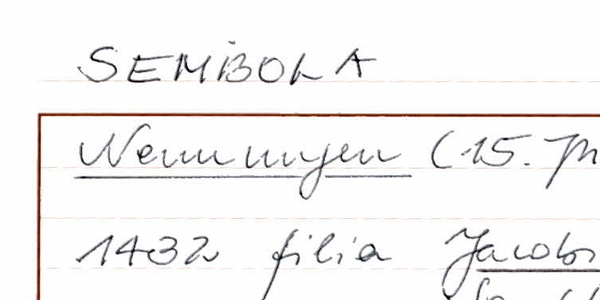 SEMIBOLA
Nenningen (15. Jh
1432 filia Jacobi